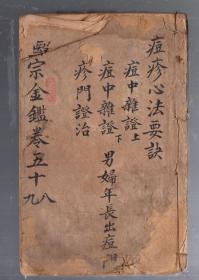 痘疹心法要訣
痘中雜證上
痘中雜證下 男婦年長出痘門
疹門證治
宗金鑑卷五十八
九